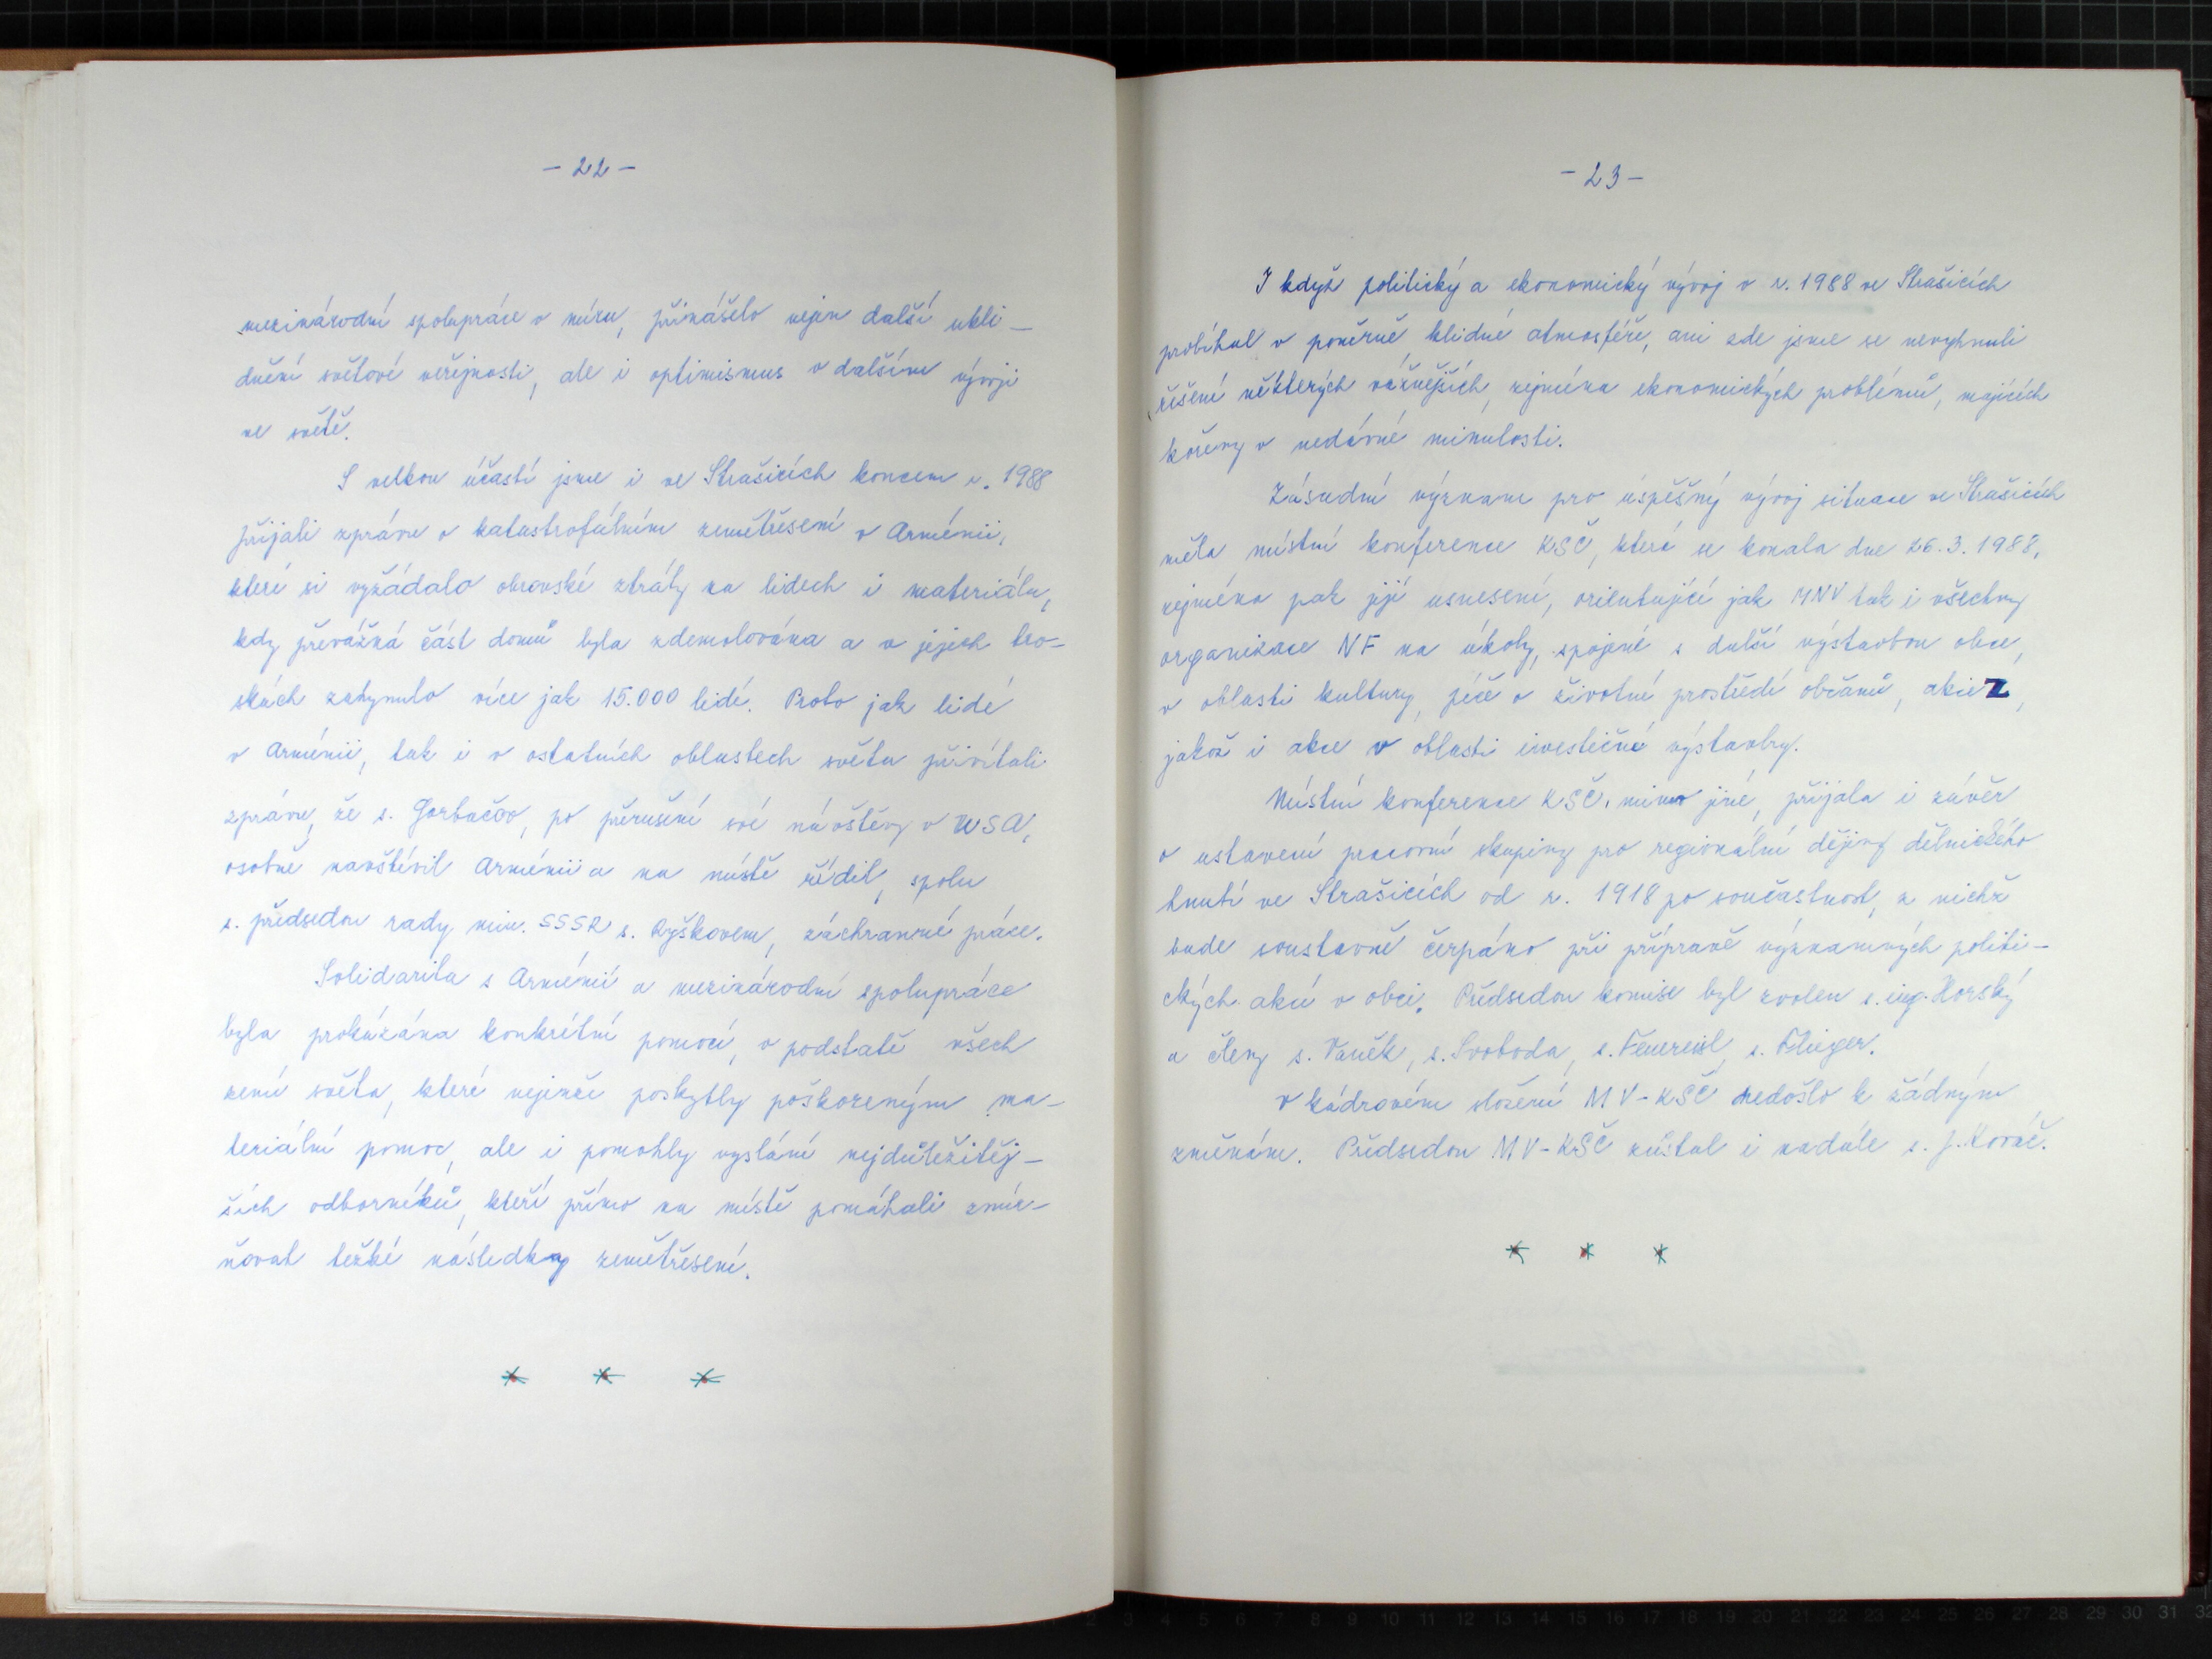 - 22 -
mezinárodní spolupráce v míru, přinášelo nejen další ukli-
dnění světové veřejnosti, ale i optimismus v dalším vývoji
ve světě.
S velkou účastí jsme i ve Strašicích koncem r. 1988
přijali zprávu o katastrofálním zemětřesení v Arménii,
které si vyžádalo obrovské ztráty na lidech i materiálu,
kdy převážná část domů byla zdemolována a v jejich tro-
skách zahynulo více jak 15.000 lidí. Proto jak lidé
v Arménii, tak i v ostatních oblastech světa přivítali
zprávu, že s. Gorbačov, po přerušení své návštěvy v USA,
osobně navštívil Arménii a na místě řídil, spolu
s. předsedou rady min. SSSR s. Ryškovem, záchranné práce.
Solidarita s Arménií a mezinárodní spolupráce
byla prokázána konkrétní pomocí, v podstatě všech
zemí světa, které nejenže poskytly poškozeným ma-
teriální pomoc, ale i pomohly vyslání nejdůležitěj-
ších odborníků, kteří přímo na místě pomáhali zmír-
ňovat težké následky zemětřesení.
* * *
- 23 -
I když politický a ekonomický vývoj v r. 1988 ve Strašicích
probíhal v poměrně klidné atmosféře, ani zde jsme se nevyhnuli
řešení některých vážnějších, zejména ekonomických problémů, majících
kořeny v nedávné minulosti.
Zásadní význam pro úspěšný vývoj situace ve Strašicích
měla místní konference KSČ, která se konala dne 26.3.1988,
zejména pak její usnesení, orientující jak MNV tak i všechny
organizace NF na úkoly, spojené s další výstavbou obce,
v oblasti kultury, péče o životní prostředí občanů, akce Z,
jakož i akce v oblasti investiční výstavby.
Místní konference KSČ, mimo jiné, přijala i závěr
o ustavení pracovní skupiny pro regionální dějiny dělnického
hnutí ve Strašicích od r. 1918 po součastnost, z nichž
bude soustavně čerpáno při přípravě významných politi-
ckých akcí v obci. Předsedou komise byl zvolen s. ing. Horský
a členy s. Vaněk, s. Svoboda, s. Feuereisl, s. Flieger.
V kádrovém složení MV-KSČ nedošlo k žádným
změnám. Předsedou MV-KSČ zůstal i nadále s. J. Kovář.
* * *